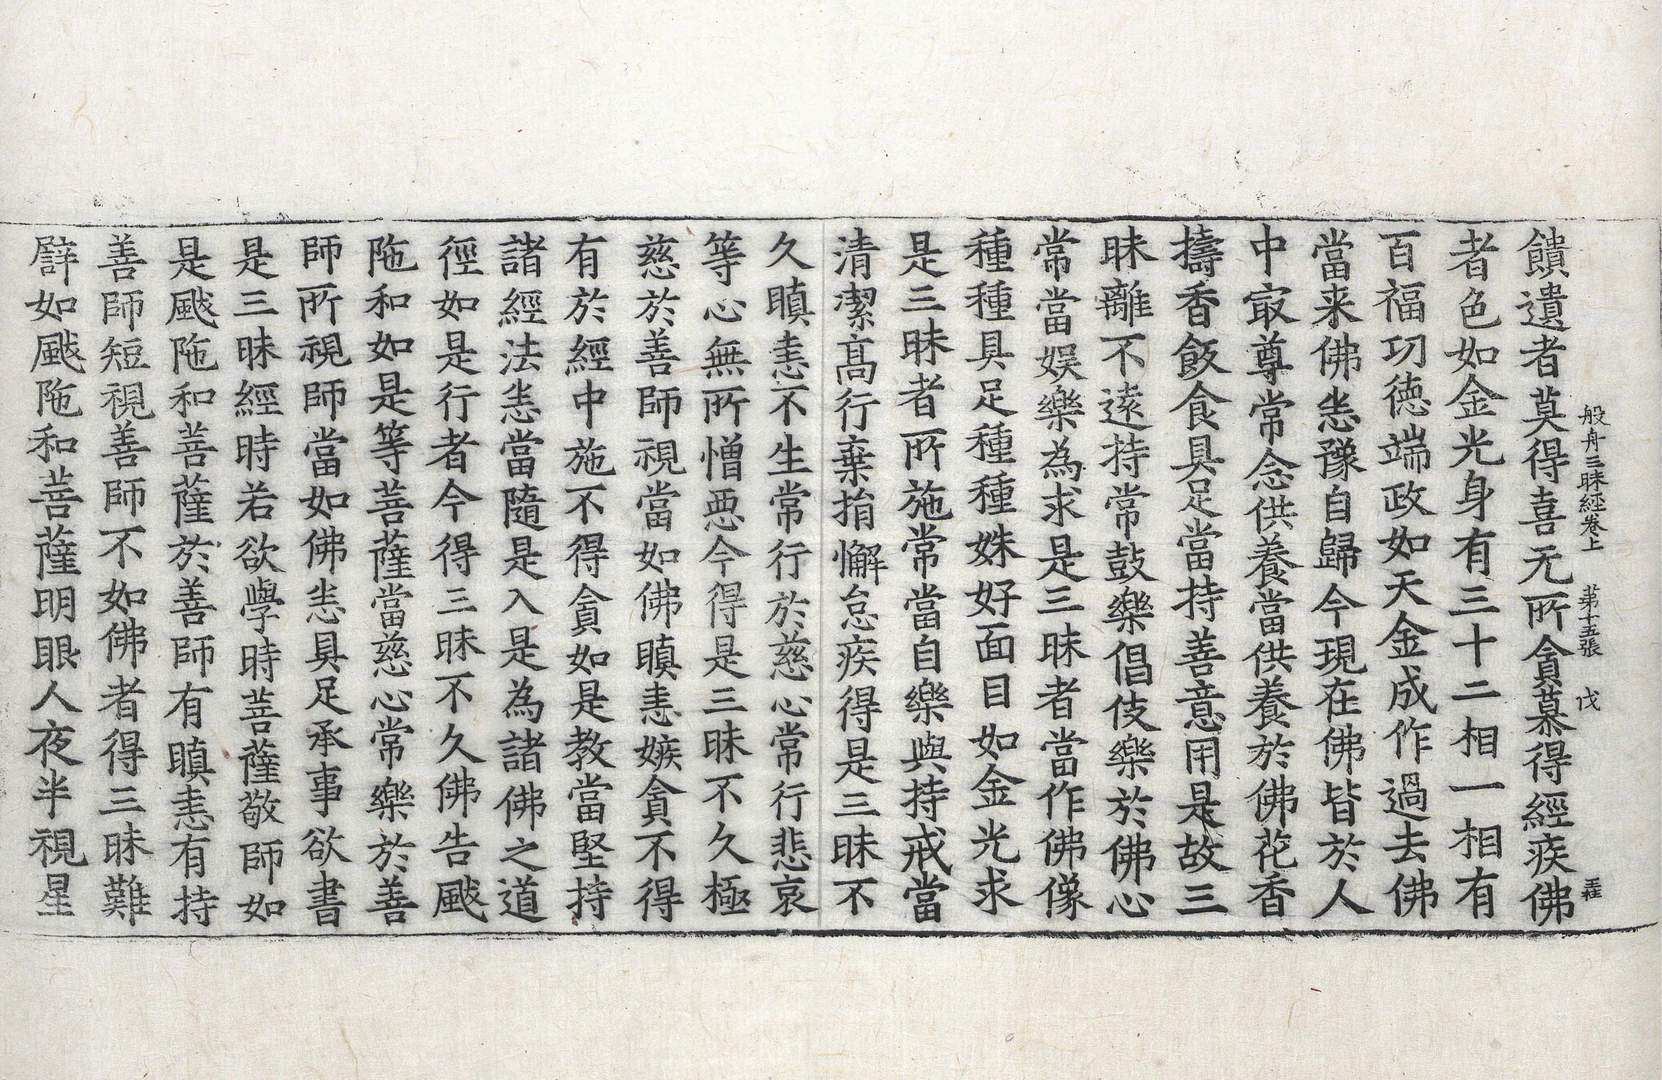 般舟三昧經卷上 第十五張 伐
饋遺者莫得喜无所貪慕得經疾佛
者色如金光身有三十二相一相有
百福㓛德端政如天金成作過去佛
當来佛悉豫自歸今現在佛皆於人
中㝡尊常念供養當供養於佛花香
擣香飯食具足當持善意用是故三
昧離不遠持常鼓樂倡伎樂於佛心
常當娱樂為求是三昧者當作佛像
種種具足種種姝好面目如金光求
是三昧者所施常當自樂與持戒當
清潔高行棄捐懈怠疾得是三昧不
久瞋恚不生常行於慈心常行悲哀
等心無所憎惡今得是三昧不久極
慈於善師視當如佛瞋恚嫉貪不得
有於經中施不得貪如是教當堅持
諸經法悉當隨是入是為諸佛之道
徑如是行者今得三昧不久佛告颰
陁和如是等菩薩當慈心常樂於善
師所視師當如佛悉具足承事欲書
是三昧經時若欲學時菩薩敬師如
是颰陁和菩薩於善師有瞋恚有持
善師短視善師不如佛者得三昧難
譬如颰陁和菩薩明眼人夜半視星